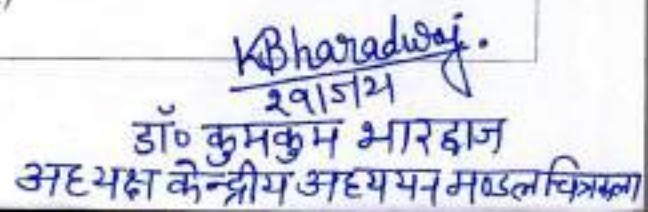 KBharadwaj.
२९/5/21
डॉ० कुमकुम भारद्वाज
अध्यक्ष केन्द्रीय अध्ययन मण्डल चित्रकला